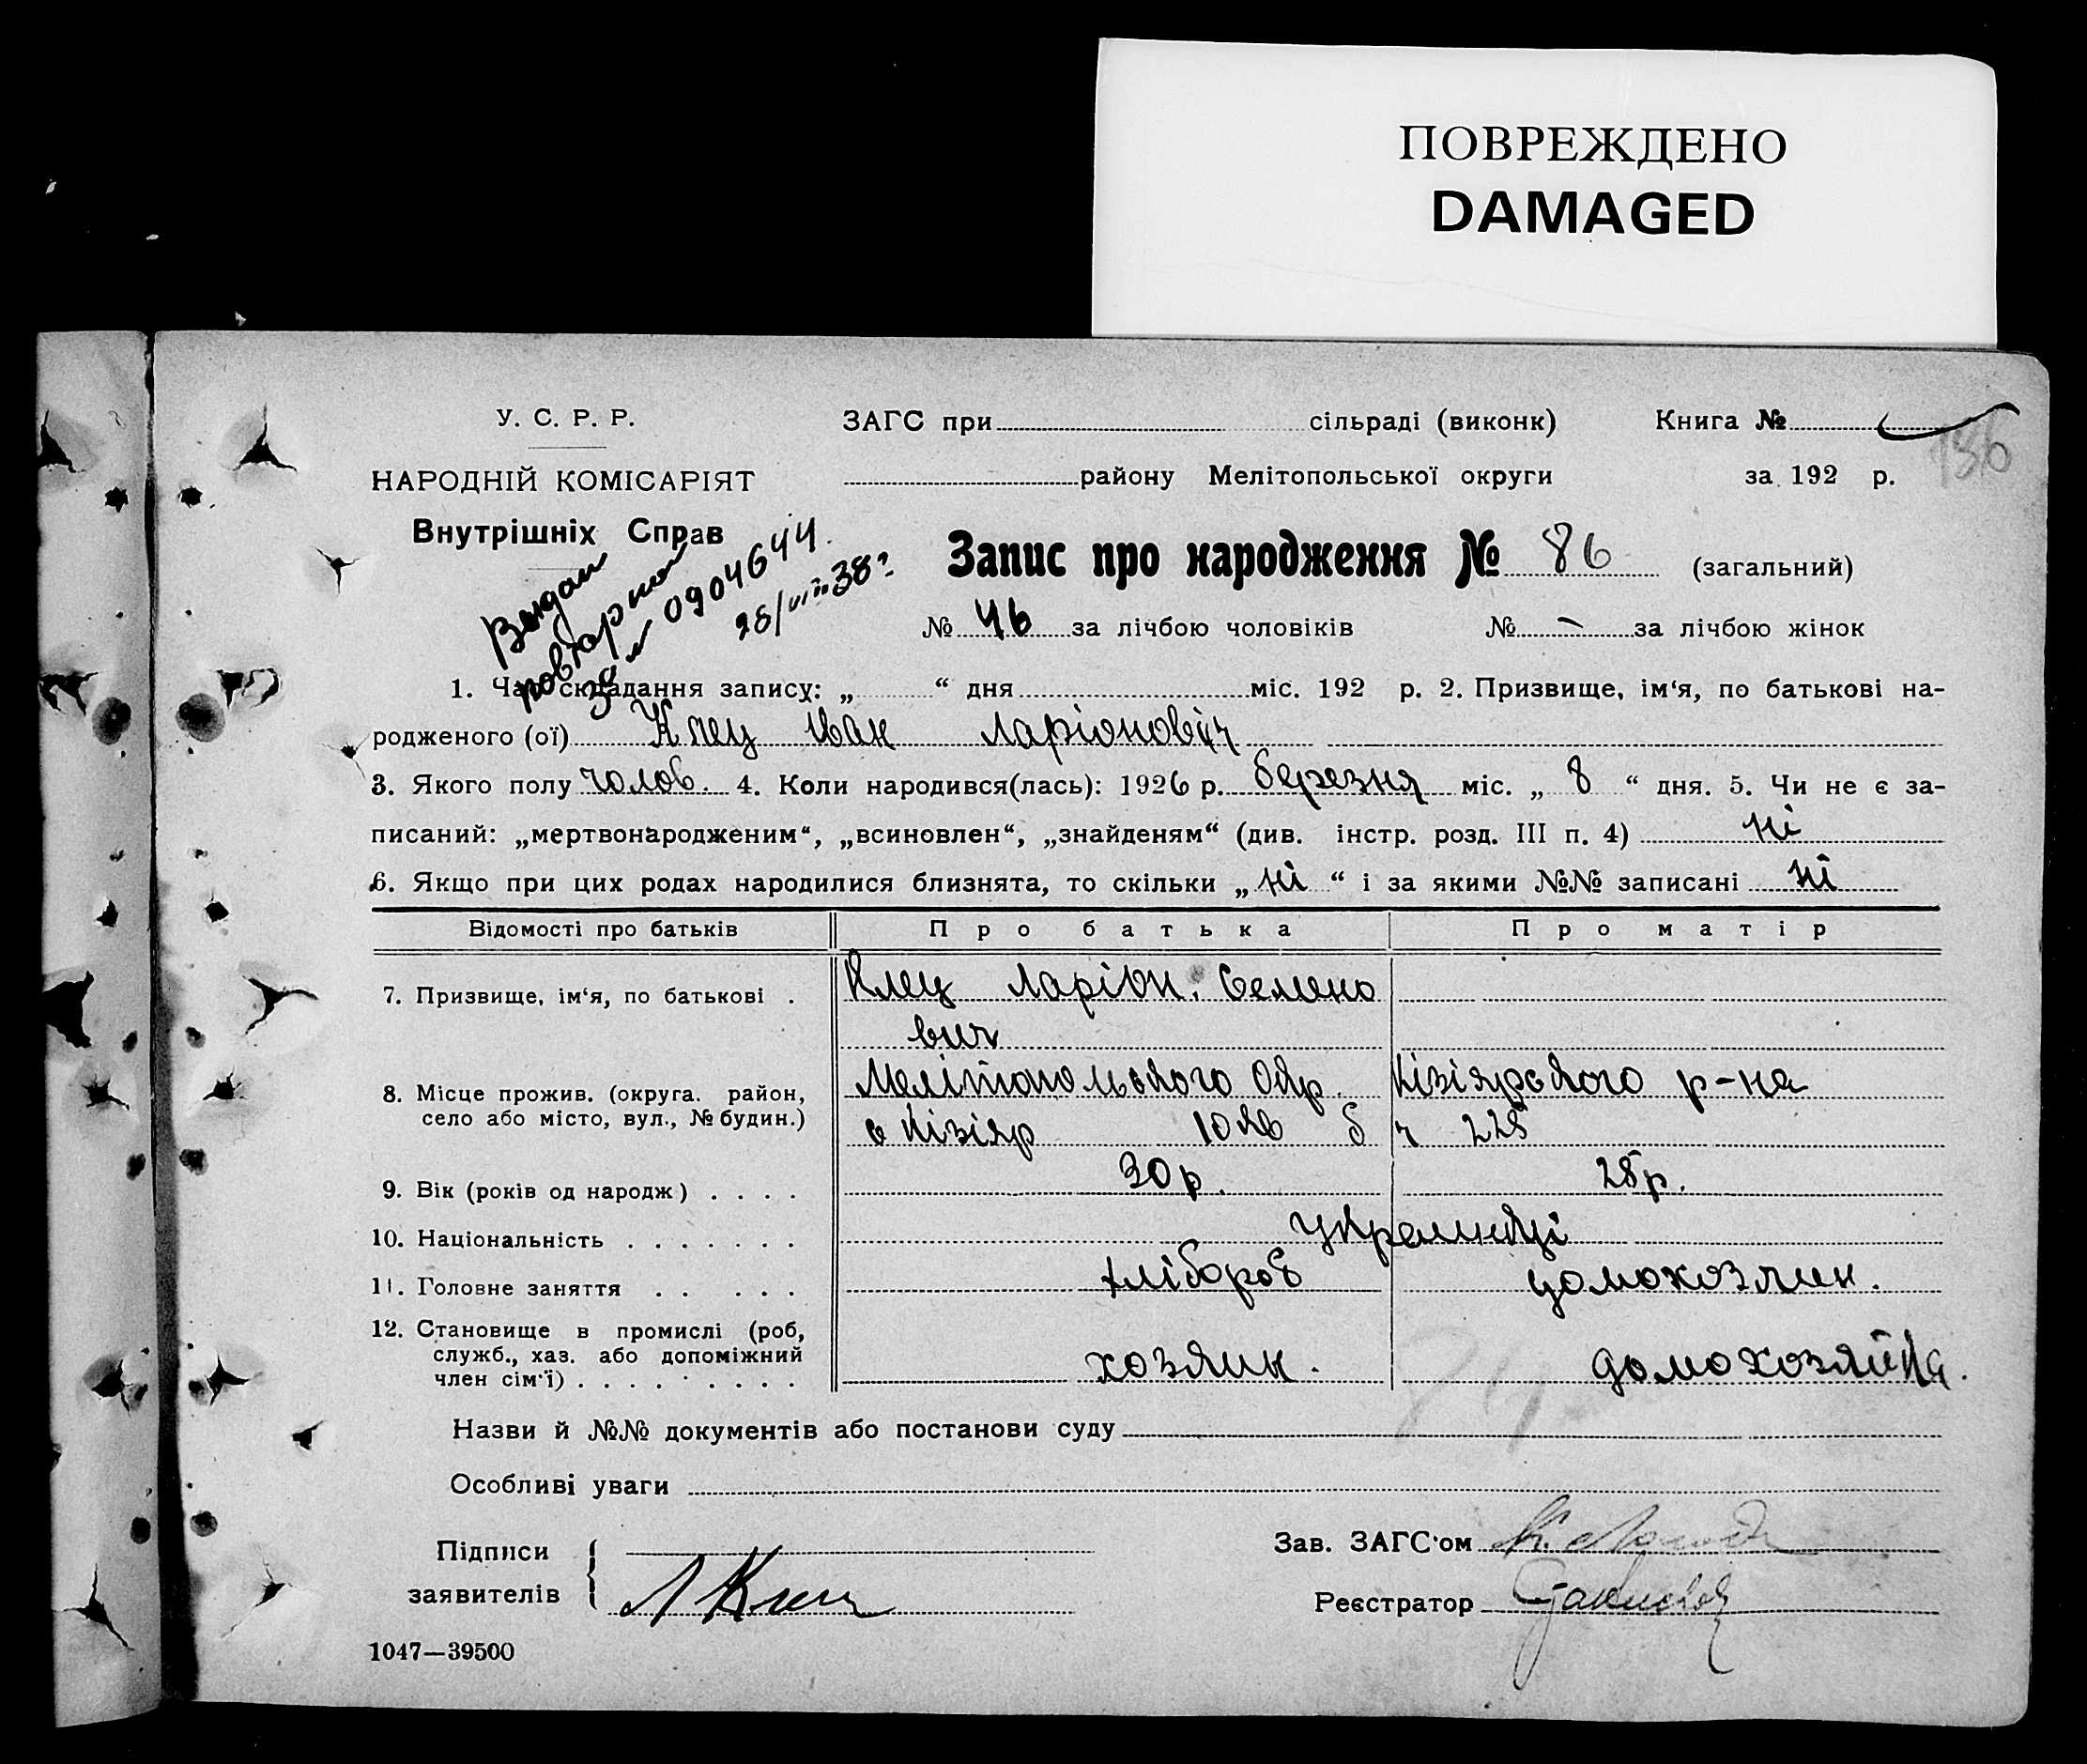 ПОВРЕЖДЕНО
DAMAGED
У. С. Р. Р.
ЗАГС при сільраді (виконк) Книга №
136
НАРОДНІЙ КОМІСАРІЯТ
району Мелітопольської округи за 192 р.
Внутрішніх Справ
Выдан
повторном
за № 0904644.
28/VIII 38 г
Запис про народження № 86 (загальний)
№ 46 за лічбою чоловіків № – за лічбою жінок
1. Час складання запису: „ “ дня міс. 192 р. 2. Призвище, ім‘я, по батькові на-
родженого (ої) Клец Іван Ларіонович
3. Якого полу чолов. 4. Коли народився(лась): 1926 р. березня міс. „ 8 “ дня. 5. Чи не є за-
писаний: „мертвонародженим“, „всиновлен“, „знайденям“ (див. інстр. розд. III п. 4) ні
6. Якщо при цих родах народилися близнята, то скільки „ ні “ і за якими №№ записані ні
Відомості про батьків Про батька Про матір
7. Призвище, ім‘я, по батькові . Клец Ларіон. Семено
вич
8. Місце прожив. (округа. район, Мелітопольского Окр. Кізіярского р-на
село або місто, вул., № будин.) с Кізіяр 10 кв б ч 228
9. Вік (років од народж) . . . . 30 р. 28 р.
10. Національність . . . . . . . украинці
11. Головне заняття . . . . . хлібороб домохозяин.
12. Становище в промислі (роб,
служб., хаз. або допоміжний хозяин. домохозяйка.
член сім‘ї) . . . . . . . . .
84
Назви й №№ документів або постанови суду
Особливі уваги
Зав. ЗАГС‘ом
Підписи
заявителів Л Клец
Реєстратор
1047—39500